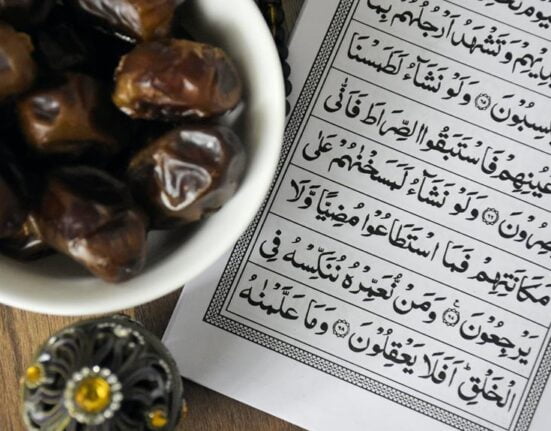 يْدِيْهِمْ وَتَشْهَدُ اَرْجُلُهُمْ بِمَا
كْسِبُوْنَ ۝ وَلَوْ نَشَآءُ لَطَمَسْنَا
عْيُنِهِمْ فَاسْتَبَقُوا الصِّرَاطَ فَاَنّٰى
صِرُوْنَ ۝ وَلَوْ نَشَآءُ لَمَسَخْنٰهُمْ عَلٰى
مَكَانَتِهِمْ فَمَا اسْتَطَاعُوْا مُضِيًّا وَّلَا
يَرْجِعُوْنَ ۝ وَمَنْ نُّعَمِّرْهُ نُنَكِّسْهُ فِى
الْخَلْقِ ؕ اَفَلَا يَعْقِلُوْنَ ۝ وَمَا عَلَّمْنٰهُ